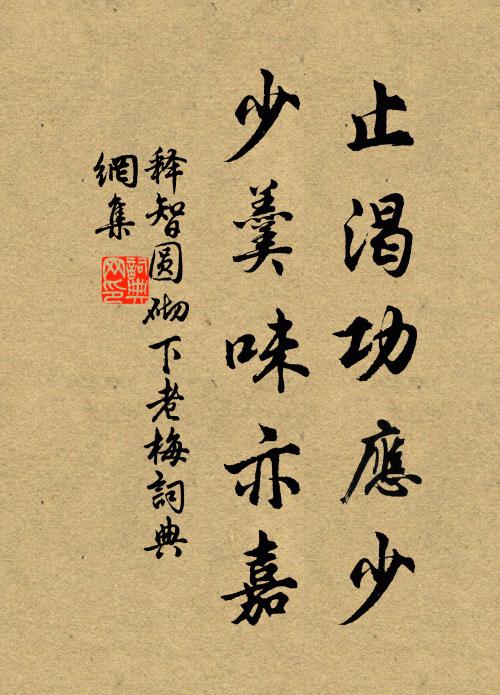 止渴功應少
少羹味亦嘉
释智圆砌下老梅詞典
網集
詞典
网印